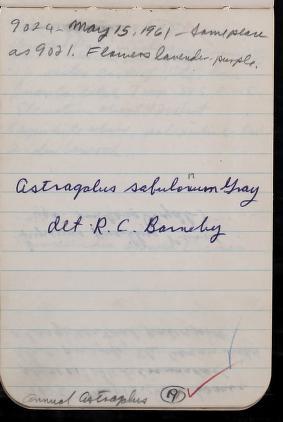 9022 - May 15, 1961 - Same place
as 9021. Flowers lavender-purple.
Astragalus sabulonum Gray
det. R. C. Barneby
Annual Astragalus (A)